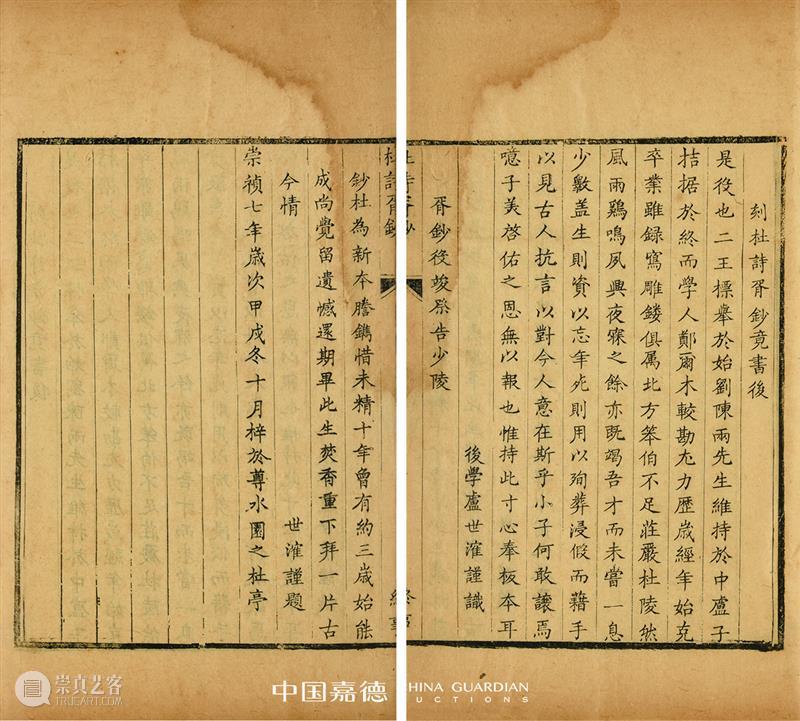 刻杜詩胥鈔竟書後
是役也二王標舉於始劉陳兩先生維持於中盧子
拮据於終而學人鄭爾木較勘尤力歷歲經年始克
卒業雖録寫雕鏤俱属北方笨伯不足莊嚴杜陵然
風雨鷄鳴夙興夜寐之餘亦既竭吾才而未嘗一息
少斁盖生則資以忘年死則用以殉葬浸假而藉手
以見古人抗言以對今人意在斯乎小子何敢讓焉
噫子美啓佑之恩無以報也惟持此寸心奉板本耳
後學盧世㴶謹識
胥鈔役竣祭告少陵
杜詩胥鈔
終事
鈔杜為新本謄鐫惜未精十年曾有約三歲始能
成尚覺留遺憾還期畢此生焚香重下拜一片古
今情
世㴶謹題
崇禎七年歲次甲戌冬十月梓於尊水園之杜亭
崇真艺客
中国嘉德
HINA GUARDIAN
UCTIONS